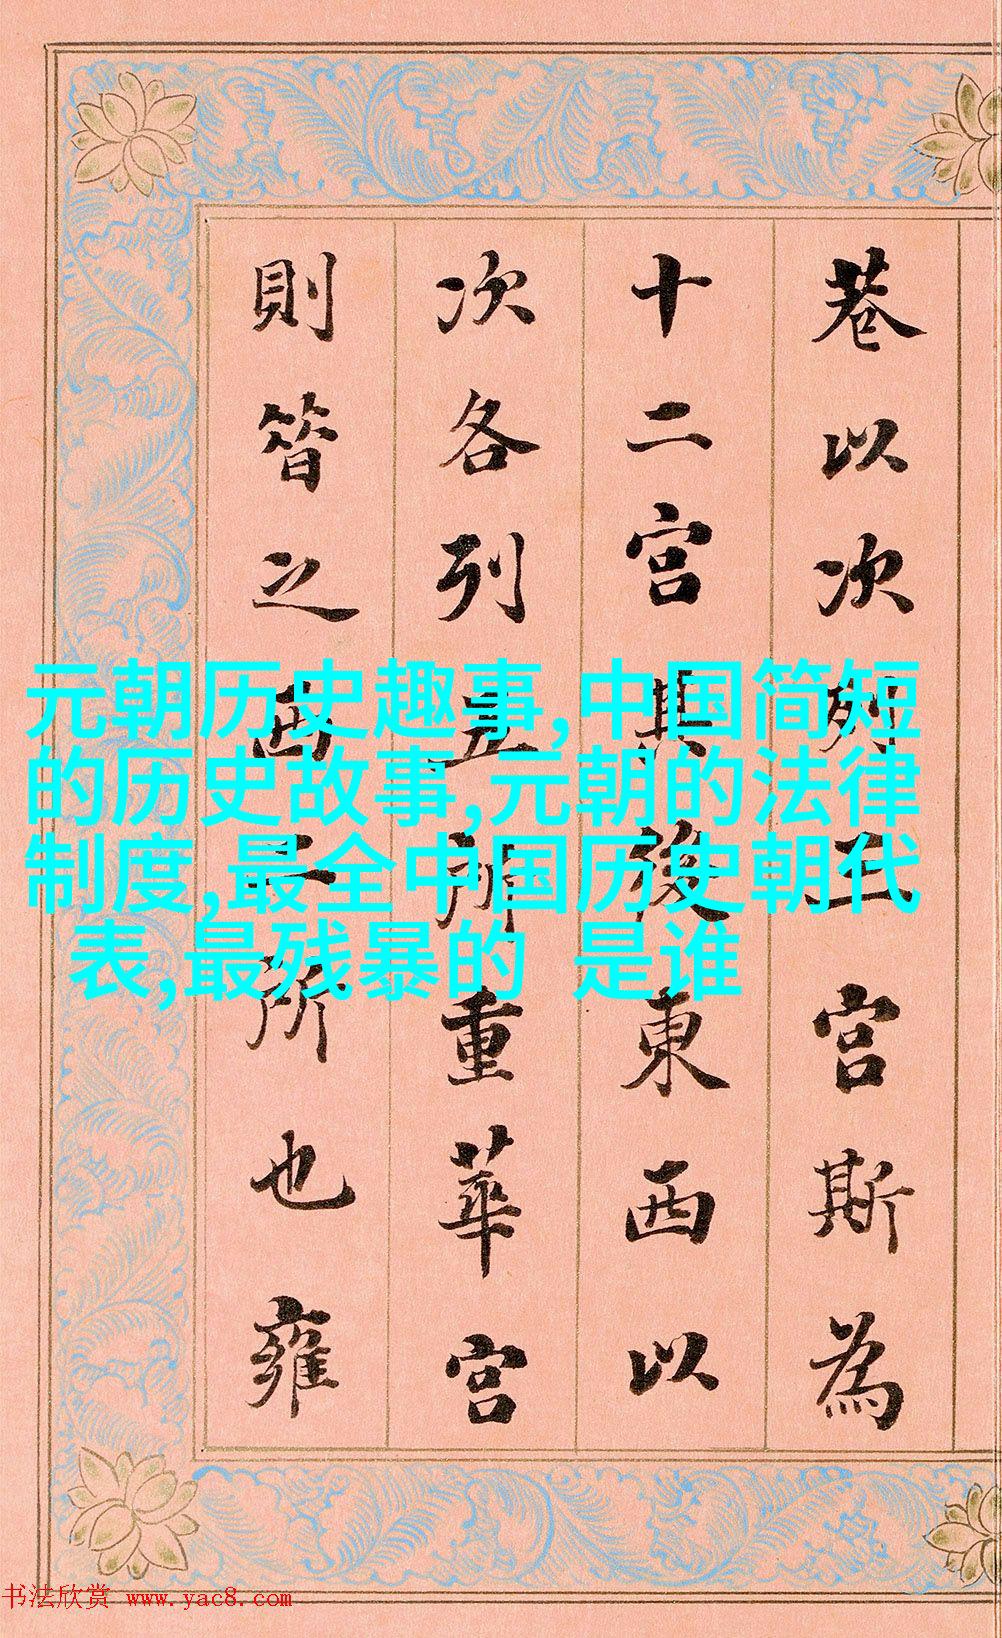 巷以次列宮斯為
十二宮其後東西以
次各列五所重華宮
則昔之西二所也雍
元朝历史趣事,中国简短
的历史故事,元朝的法律
制度,最全中国历史朝代
表,最残暴的 是谁
书法欣赏 www.yac8.com